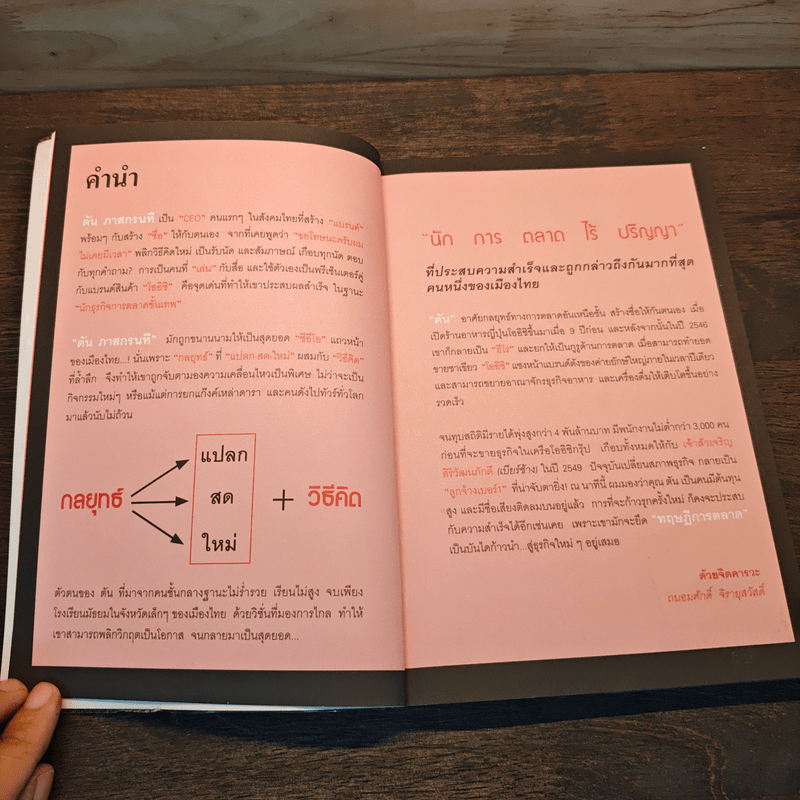 คำนำ
ตัน ภาสกรนที เป็น "CEO" คนแรกๆ ในสังคมไทยที่สร้าง "แบรนด์"
พร้อมๆ กับสร้าง "ชื่อ" ให้กับตนเอง จากที่เคยพูดว่า "ขอโทษนะครับผม
ไม่เคยมีเวลา" พลิกวิธีคิดใหม่ เป็นรับนัด และสัมภาษณ์ เกือบทุกนัด ตอบ
กับทุกคำถาม? การเป็นคนที่ "เล่น" กับสื่อ และใช้ตัวเองเป็นพรีเซ็นเตอร์คู่
กับแบรนด์สินค้า "โออิชิ" คือจุดเด่นที่ทำให้เขาประสบผลสำเร็จ ในฐานะ
"นักธุรกิจการตลาดชั้นเทพ"
"ตัน ภาสกรนที" มักถูกขนานนามให้เป็นสุดยอด "ซีอีโอ" แถวหน้า
ของเมืองไทย...! นั่นเพราะ "กลยุทธ์" ที่ "แปลก-สด-ใหม่" ผสมกับ "วิธีคิด"
ที่ล้ำลึก จึงทำให้เขาถูกจับตามองความเคลื่อนไหวเป็นพิเศษ ไม่ว่าจะเป็น
กิจกรรมใหม่ๆ หรือแม้แต่การยกแก๊งค์เหล่าดารา และคนดังไปทัวร์ทั่วโลก
มาแล้วนับไม่ถ้วน
แปลก
กลยุทธ์ สด + วิธีคิด
ใหม่
ตัวตนของ ตัน ที่มาจากคนชั้นกลางฐานะไม่ร่ำรวย เรียนไม่สูง จบเพียง
โรงเรียนมัธยมในจังหวัดเล็กๆ ของเมืองไทย ด้วยวิชั่นที่มองการไกล ทำให้
เขาสามารถพลิกวิกฤตเป็นโอกาส จนกลายมาเป็นสุดยอด...
"นัก การ ตลาด ไร้ ปริญญา"
ที่ประสบความสำเร็จและถูกกล่าวถึงกันมากที่สุด
คนหนึ่งของเมืองไทย
"ตัน" อาศัยกลยุทธ์ทางการตลาดอันเหนือชั้น สร้างชื่อให้กับตนเอง เมื่อ
เปิดร้านอาหารญี่ปุ่นโออิชิขึ้นมาเมื่อ 9 ปีก่อน และหลังจากนั้นในปี 2546
เขาก็กลายเป็น "ฮีโร่" และยกให้เป็นกูรูด้านการตลาด เมื่อสามารถทำยอด
ขายชาเขียว "โออิชิ" แซงหน้าแบรนด์ดังของค่ายยักษ์ใหญ่ภายในเวลาปีเดียว
และสามารถขยายอาณาจักรธุรกิจอาหาร และเครื่องดื่มให้เติบโตขึ้นอย่าง
รวดเร็ว
จนทุบสถิติมีรายได้พุ่งสูงกว่า 4 พันล้านบาท มีพนักงานไม่ต่ำกว่า 3,000 คน
ก่อนที่จะขายธุรกิจในเครือโออิชิกรุ๊ป เกือบทั้งหมดให้กับ เจ้าสัวเจริญ
สิริวัฒนภักดี (เบียร์ช้าง) ในปี 2549 ปัจจุบันเปลี่ยนสภาพธุรกิจ กลายเป็น
"ลูกจ้างเบอร์1" ที่น่าจับตายิ่ง! ณ นาทีนี้ ผมมองว่าคุณ ตัน เป็นคนมีต้นทุน
สูง และมีชื่อเสียงติดลมบนอยู่แล้ว การที่จะก้าวรุกครั้งใหม่ ก็คงจะประสบ
กับความสำเร็จได้อีกเช่นเคย เพราะเขามักจะยึด "ทฤษฎีการตลาด"
เป็นบันไดก้าวนำ...สู่ธุรกิจใหม่ ๆ อยู่เสมอ
ด้วยจิตคารวะ
ถนอมศักดิ์ จิรายุสวัสดิ์